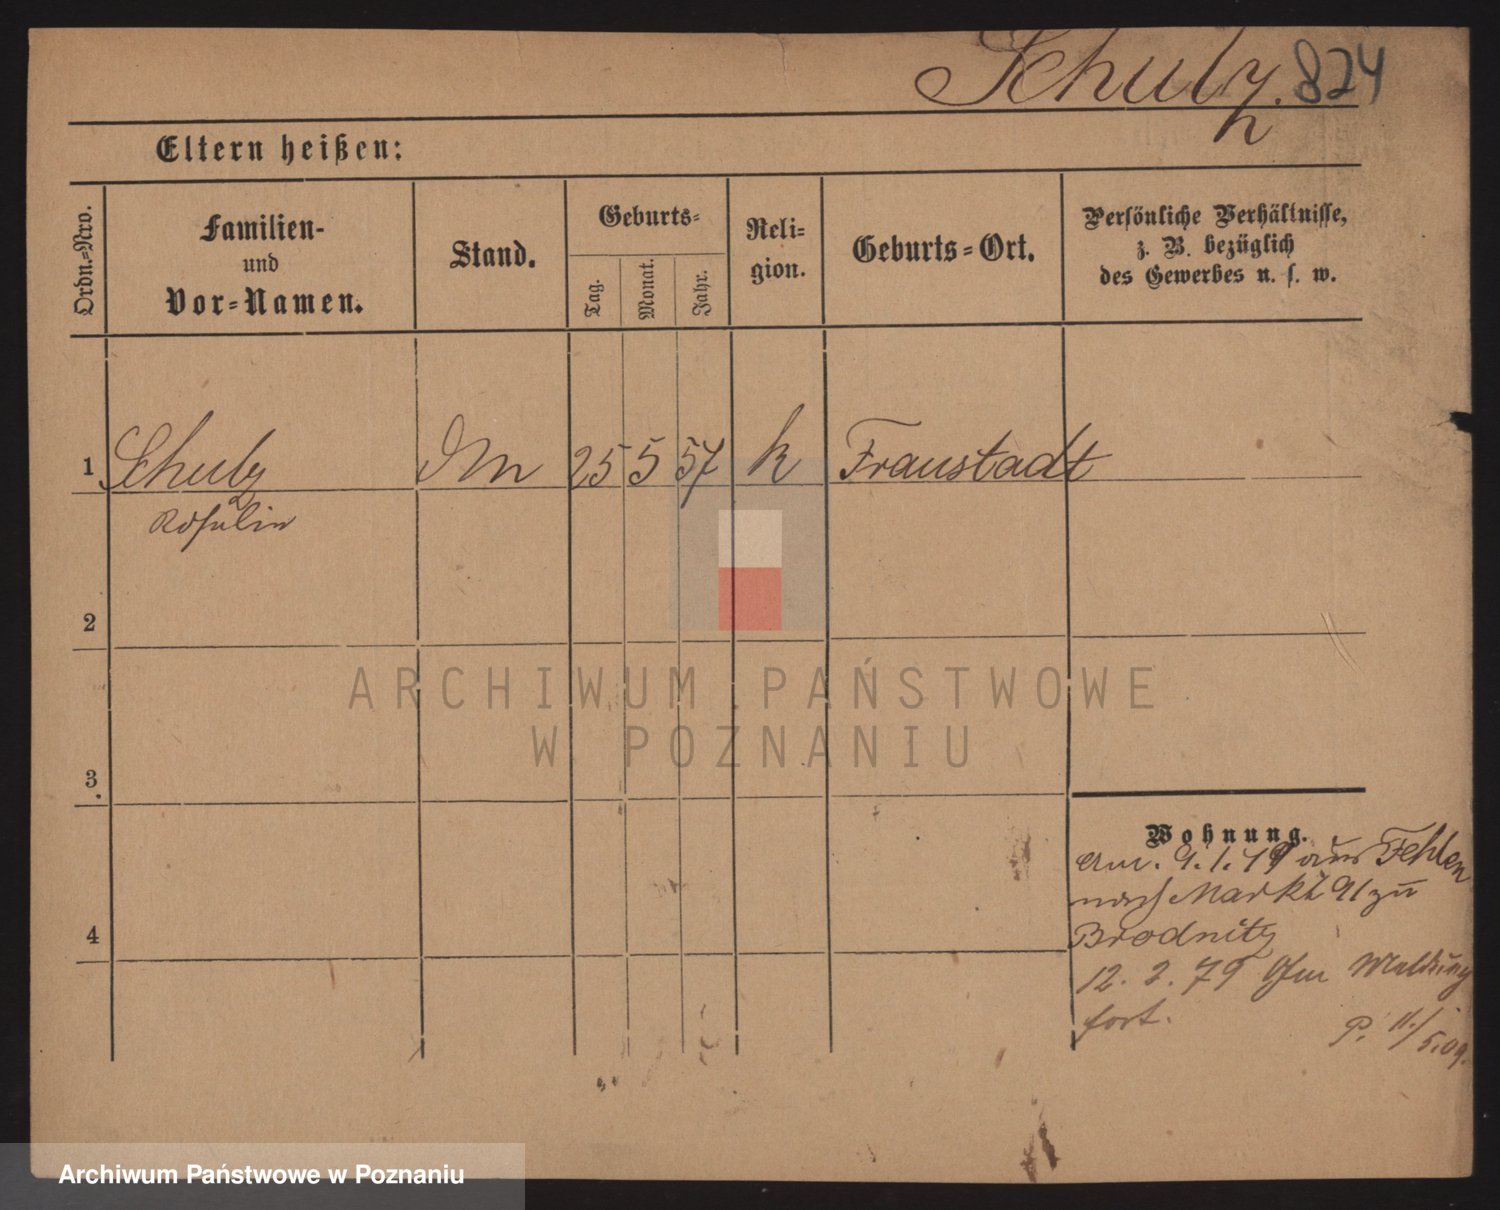 Schulz. 824
Eltern heißen:
Ordn.=Nro.
Familien-
und
Vor=Namen.
Stand.
Geburts=
Tag.
Monat.
Jahr.
Reli=
gion.
Geburts=Ort.
Persönliche Verhältnisse,
z. B. bezüglich
des Gewerbes u. s. w.
1 Schulz 25 5 57 k Fraustadt
2
3
ARCHIWUM PAŃSTWOWE
W POZNANIU
Wohnung.
am. 9.1.79 aus Fehlen
nach Markt 91 zu
4
12. 2. 79 Meldung
fort.
P. 11./5.09.
Archiwum Państwowe w Poznaniu